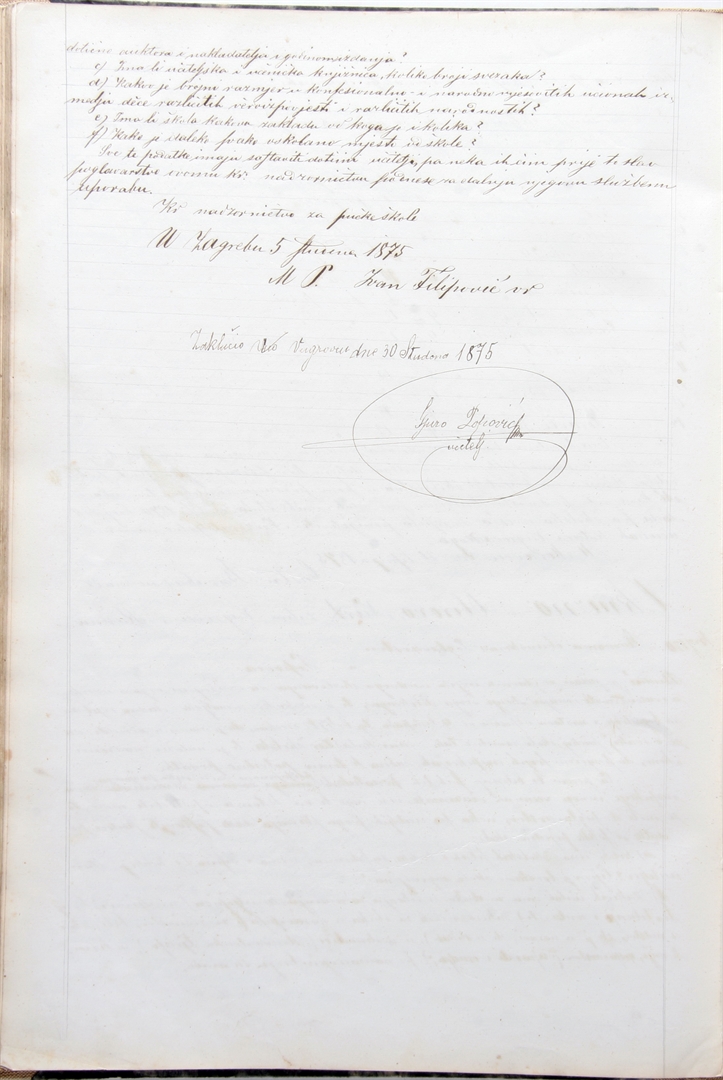 dotične auktora i nakladatelja i godinom izdanja?
c) Ima li učiteljska i učenička knjižnica, koliko broji svezaka?
d) Kakov je brojno razmjer u konfesionalno- i narodno mješovitih učionah iz-
medju dice različitih viroizpovjesti i različitih narodnostih?
e) Ima li škola kakova zaklada od koga je i kolika?
f) Kako je daleko svako uskolano mjesto od škole?
Sve te podatke imaju sastaviti dotični učitelji, pa neka ih čim prije to slav
poglavarstvo ovomu kr. nadzorničtvu podnese za dalnju njegovu službenu
uporabu.
Kr nadzorničtvo za pučke škole
U Zagrebu 5 Studena 1875
M P. Ivan Filipović vr
Zaključio Vugrovcu dne 30 Studena 1875
Gjuro Popović
učitelj.